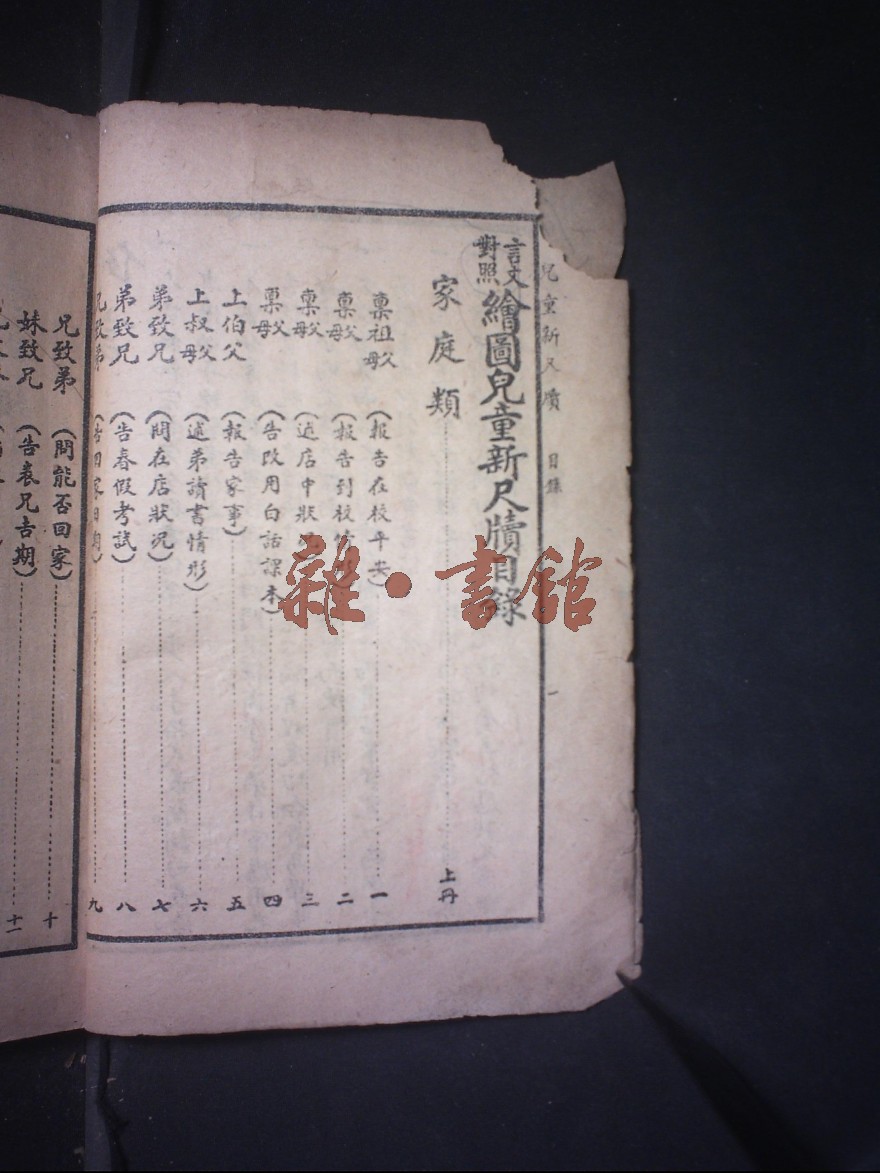 兒童新尺牘 目錄 一
言文對照繪圖兒童新尺牘目錄
家庭類 上冊
稟祖父母（報告在校平安） 一
稟父母（報告到校情形） 二
稟父母（述店中狀況） 三
稟父母（告改用白話課本） 四
上伯父（報告家事） 五
上叔父母（述弟讀書情形） 六
弟致兄（問在店狀況） 七
弟致兄（告春假考試） 八
兄致弟（告回家日期） 九
兄致弟（問能否回家） 十
妹致兄（告表兄吉期） 十一
雜·書館